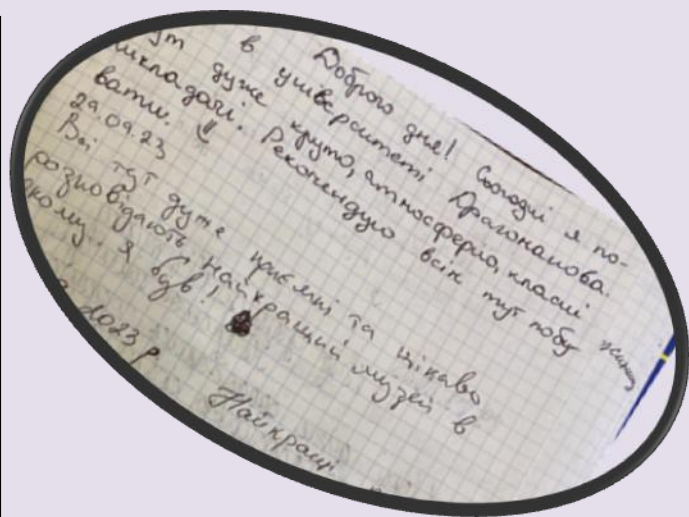 Доброго дня! Сьогодні я по-
в університеті Драгоманова.
ут дуже круто, атмосферно, класні
икладачі. Рекомендую всім тут побу
вати.
29.09.23
Всі тут дуже приємні та цікаво
розповідають Найкращий музей в
якому я був!
2023 р
Найкращі